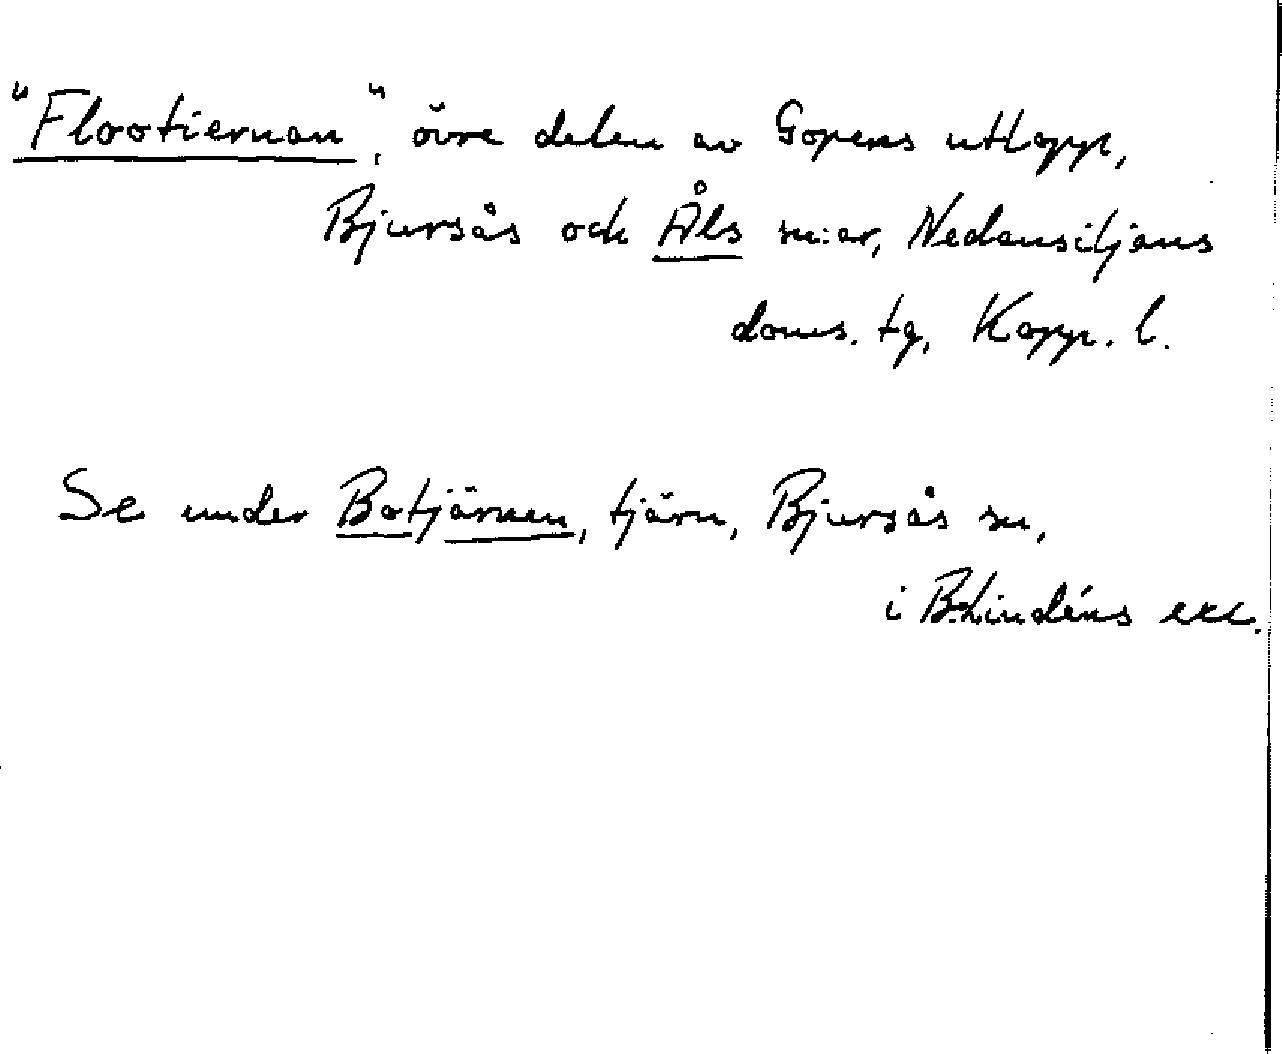 "Flootiernan", övre delen av Gopens utlopp,
Bjursås och Åls sn:ar, Nedansiljans
doms. tg, Kopp. l.
Se under Botjärnen, tjärn, Bjursås sn,
i B. Lindéns exc.